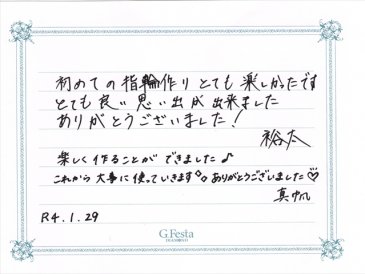 初めての指輪作りとても楽しかたです
とても良い思い出が出来ました
ありがとうございました！
裕太
楽しく作ることができました♪
これから大事に使っていきます✨ありがとうございました♡
真帆
R4.1.29
G.Festa
DIAMOND